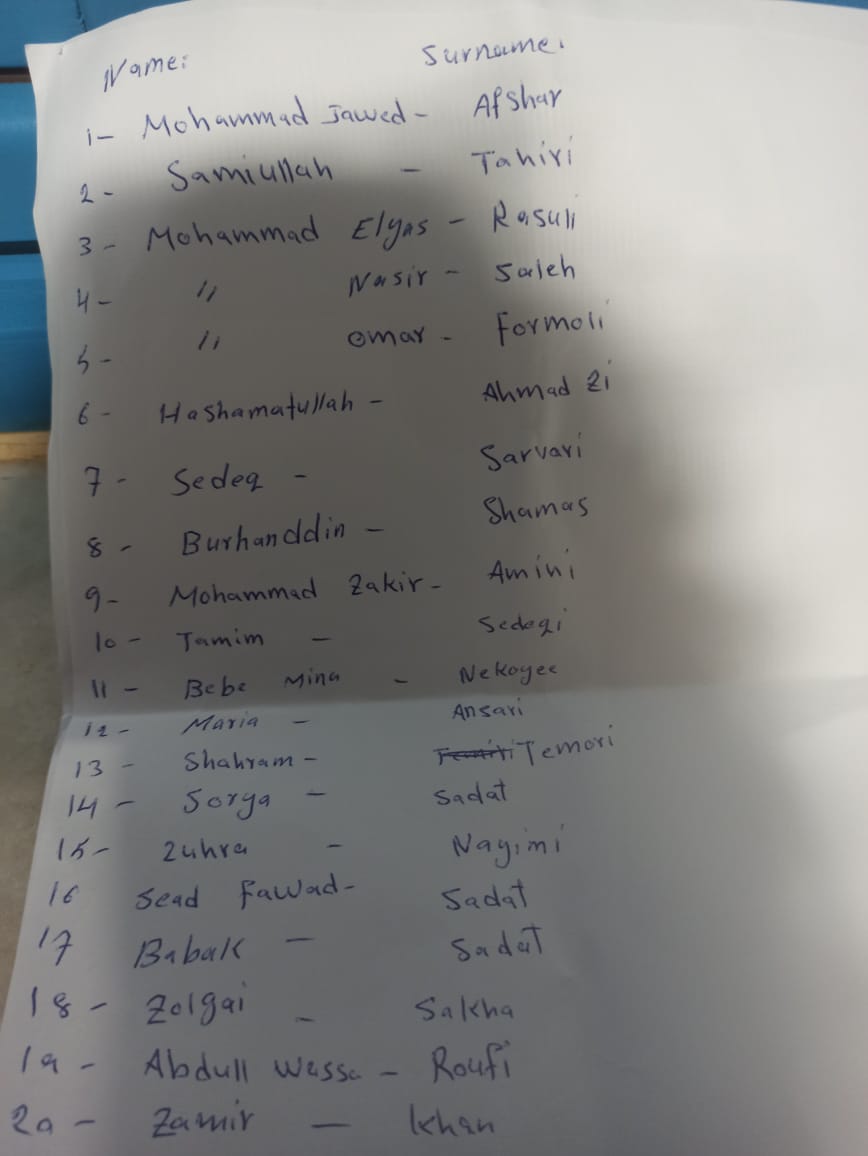 Name: Surname.
1- Mohammad Jawed - Afshar
2- Samiullah - Tahiri
3- Mohammad Elyas - Rasuli
4- " Nasir - Saleh
5- " Omar - Formoli
6- Hashamatullah - Ahmad Zi
7- Sedeq - Sarvari
8- Burhanddin - Shamas
9- Mohammad Zakir - Amini
10- Tamim - Sedeqi
11- Bebe Mina - Nekoyee
12- Maria - Ansari
13- Shahram - Temori
14- Sorya - Sadat
15- Zuhra - Nayimi
16 Sead Fawad - Sadat
17 Babak - Sadat
18- Zolgai - Sakha
19- Abdull Wassa - Roufi
20- Zamir - Khan